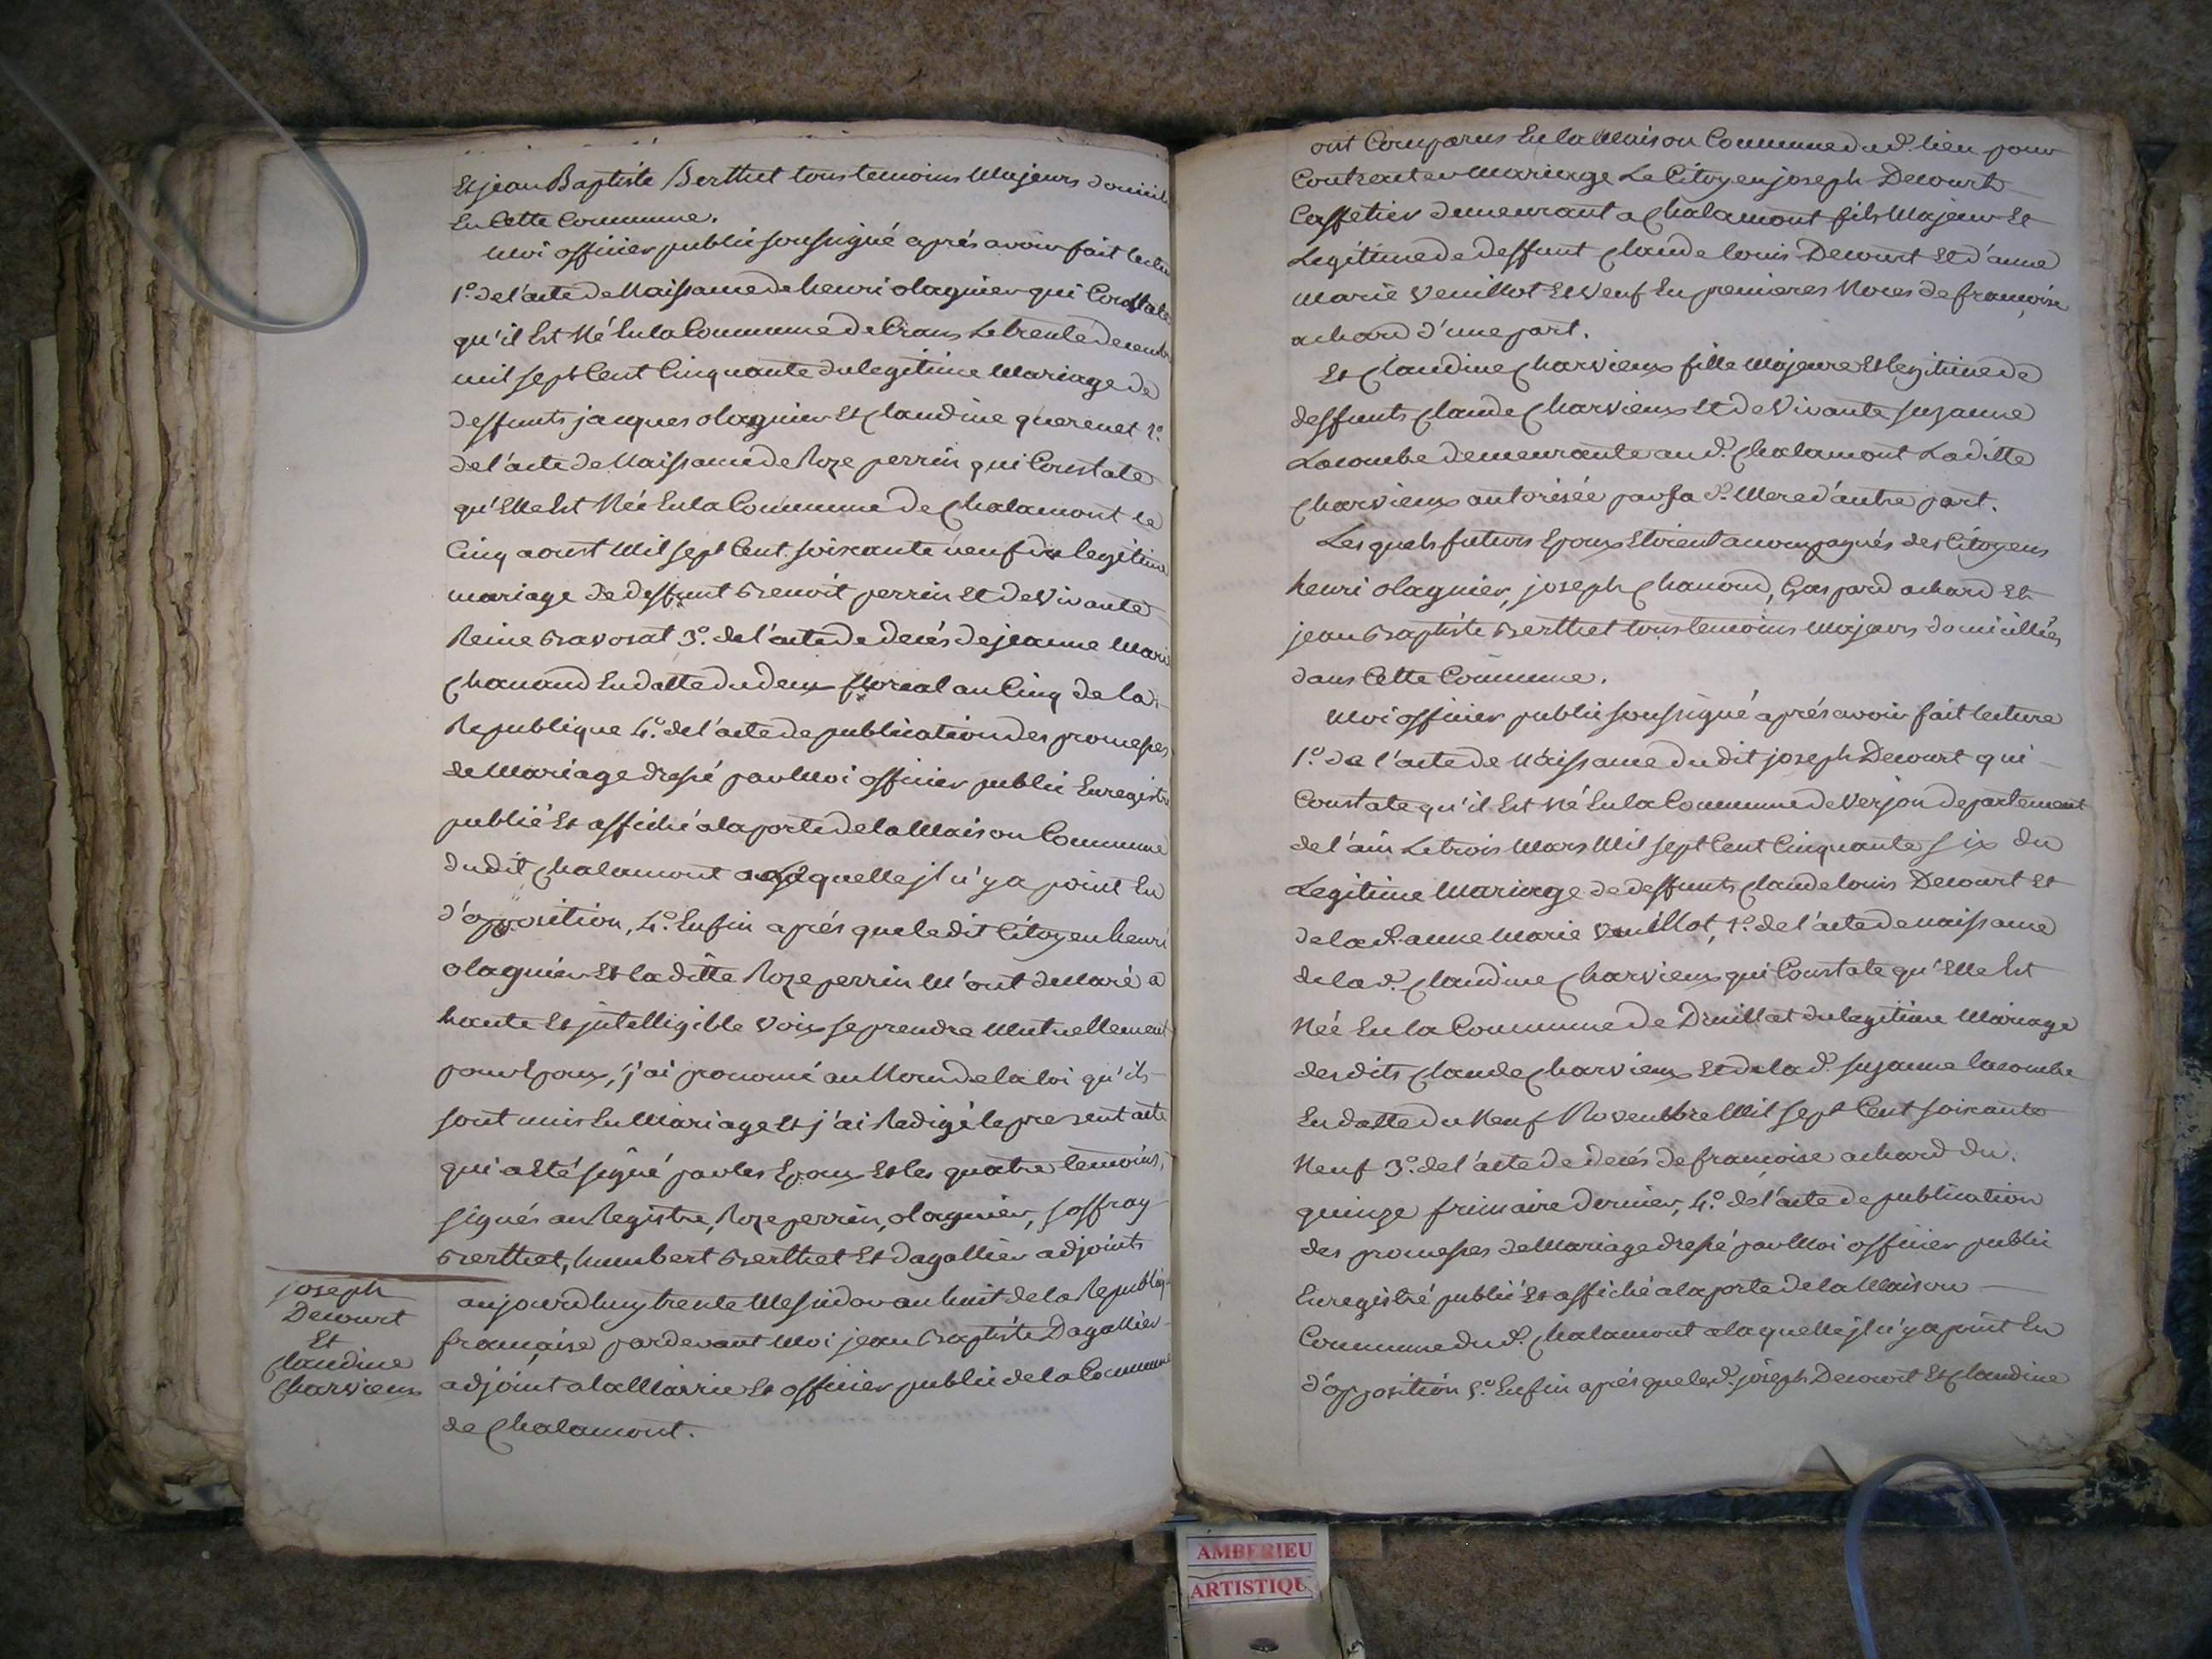 Et jean Baptiste Berthet tous temoins Majeurs domicil
En Cette Commune.
Moi officier public soussigné aprés avoir fait lectu
1.º de l'acte de Naissance de henri olagnier qui Constate
qu'il Est Né En la Commune de Crans Le trente decemb
mil sept Cent Cinquante du legitime Mariage de
deffunts jacques olagnier Et Claudine querenet 2.º
de l'acte de Naissance de Roze perrin qui Constate
qu'Elle Est Née En la Commune de Chalamont le
Cinq aoust Mil sept Cent soixante neuf du legitime
mariage de deffunt Benoit perrin Et de Vivante
Reine Bavosat 3.º de l'acte de decés de jeanne Mari
Chanand En datte du deux floreal an Cinq de la
Republique 4.º de l'acte de publication des promesses
de Mariage dressé par Moi officier public Enregistré
publié Et affiché a la porte de la Maison Commune
dudit Chalamont a laquelle jl n'y a point Eu
d'opposition, 4.º Enfin aprés que ledit Citoyen henri
olagnier Et la ditte Roze perrin M'ont declaré a
haute Et jntelligible voix se prendre Mutuellement
pour Epoux, j'ai prononcé au Nom de la loi qu'ils
sont unis En Mariage Et j'ai Redigé le present acte
qui a Eté signé par les Epoux Et les quatre temoins,
signés au Registre, Roze perrin, olagnier, joffray
Berthet, humbert Berthet Et Dagallier adjoints
joseph
Decourt
Et
Claudine
Charvieux
aujourdhuy trente Messidor an huit de la Republiq
francaise pardevant Moi jean Baptiste Dagallier
adjoint a la Mairie Et officier public de la Commune
de Chalamont.
ont Comparus En la Maison Commune dud. lieu pour
Contracter Mariage Le Citoyen joseph Decourt
Caffetier demeurant a Chalamont fils Majeur Et
Legitime de deffunt Claude louis Decourt Et d'anne
Marie Veuillot Et Veuf En premieres Noces de francoise
achard d'une part.
Et Claudine Charvieux fille Majeure Et legitime de
deffunts Claude Charvieux Et de Vivante suzanne
Lacombe demeurante aud. Chalamont La ditte
Charvieux autorisée par sa d. Mere d'autre part.
Les quels futurs Epoux Etoient accompagnés des Citoyens
henri olagnier, joseph Chanand, Gaspard achard Et
jean Baptiste Berthet tous temoins Majeurs domicilliés
dans Cette Commune.
Moi officier public soussigné aprés avoir fait lecture
1.º de l'acte de Naissance dudit joseph Decourt qui
Constate qu'il Est Né En la Commune de Verjon departement
de l'ain Le trois Mars Mil sept Cent Cinquante six du
Legitime Mariage de deffunts Claude louis Decourt Et
de la d. anne Marie Veuillot, 2.º de l'acte de naissance
de la d. Claudine Charvieux qui Constate qu'Elle Est
Née En la Commune de Druillat du legitime Mariage
desdits Claude Charvieux Et de la d. suzanne lacombe
En datte du Neuf Novembre Mil sept Cent soixante
Neuf 3.º de l'acte de decés de francoise achard du
quinze frimaire dernier, 4.º de l'acte de publication
des promesses de Mariage dressé par Moi officier public
Enregistré publié Et affiché a la porte de la Maison
Commune dud. Chalamont a laquelle jl n'y a point Eu
d'opposition 5.º Enfin aprés que led. joseph Decourt Et Claudine
AMBERIEU
ARTISTIQU